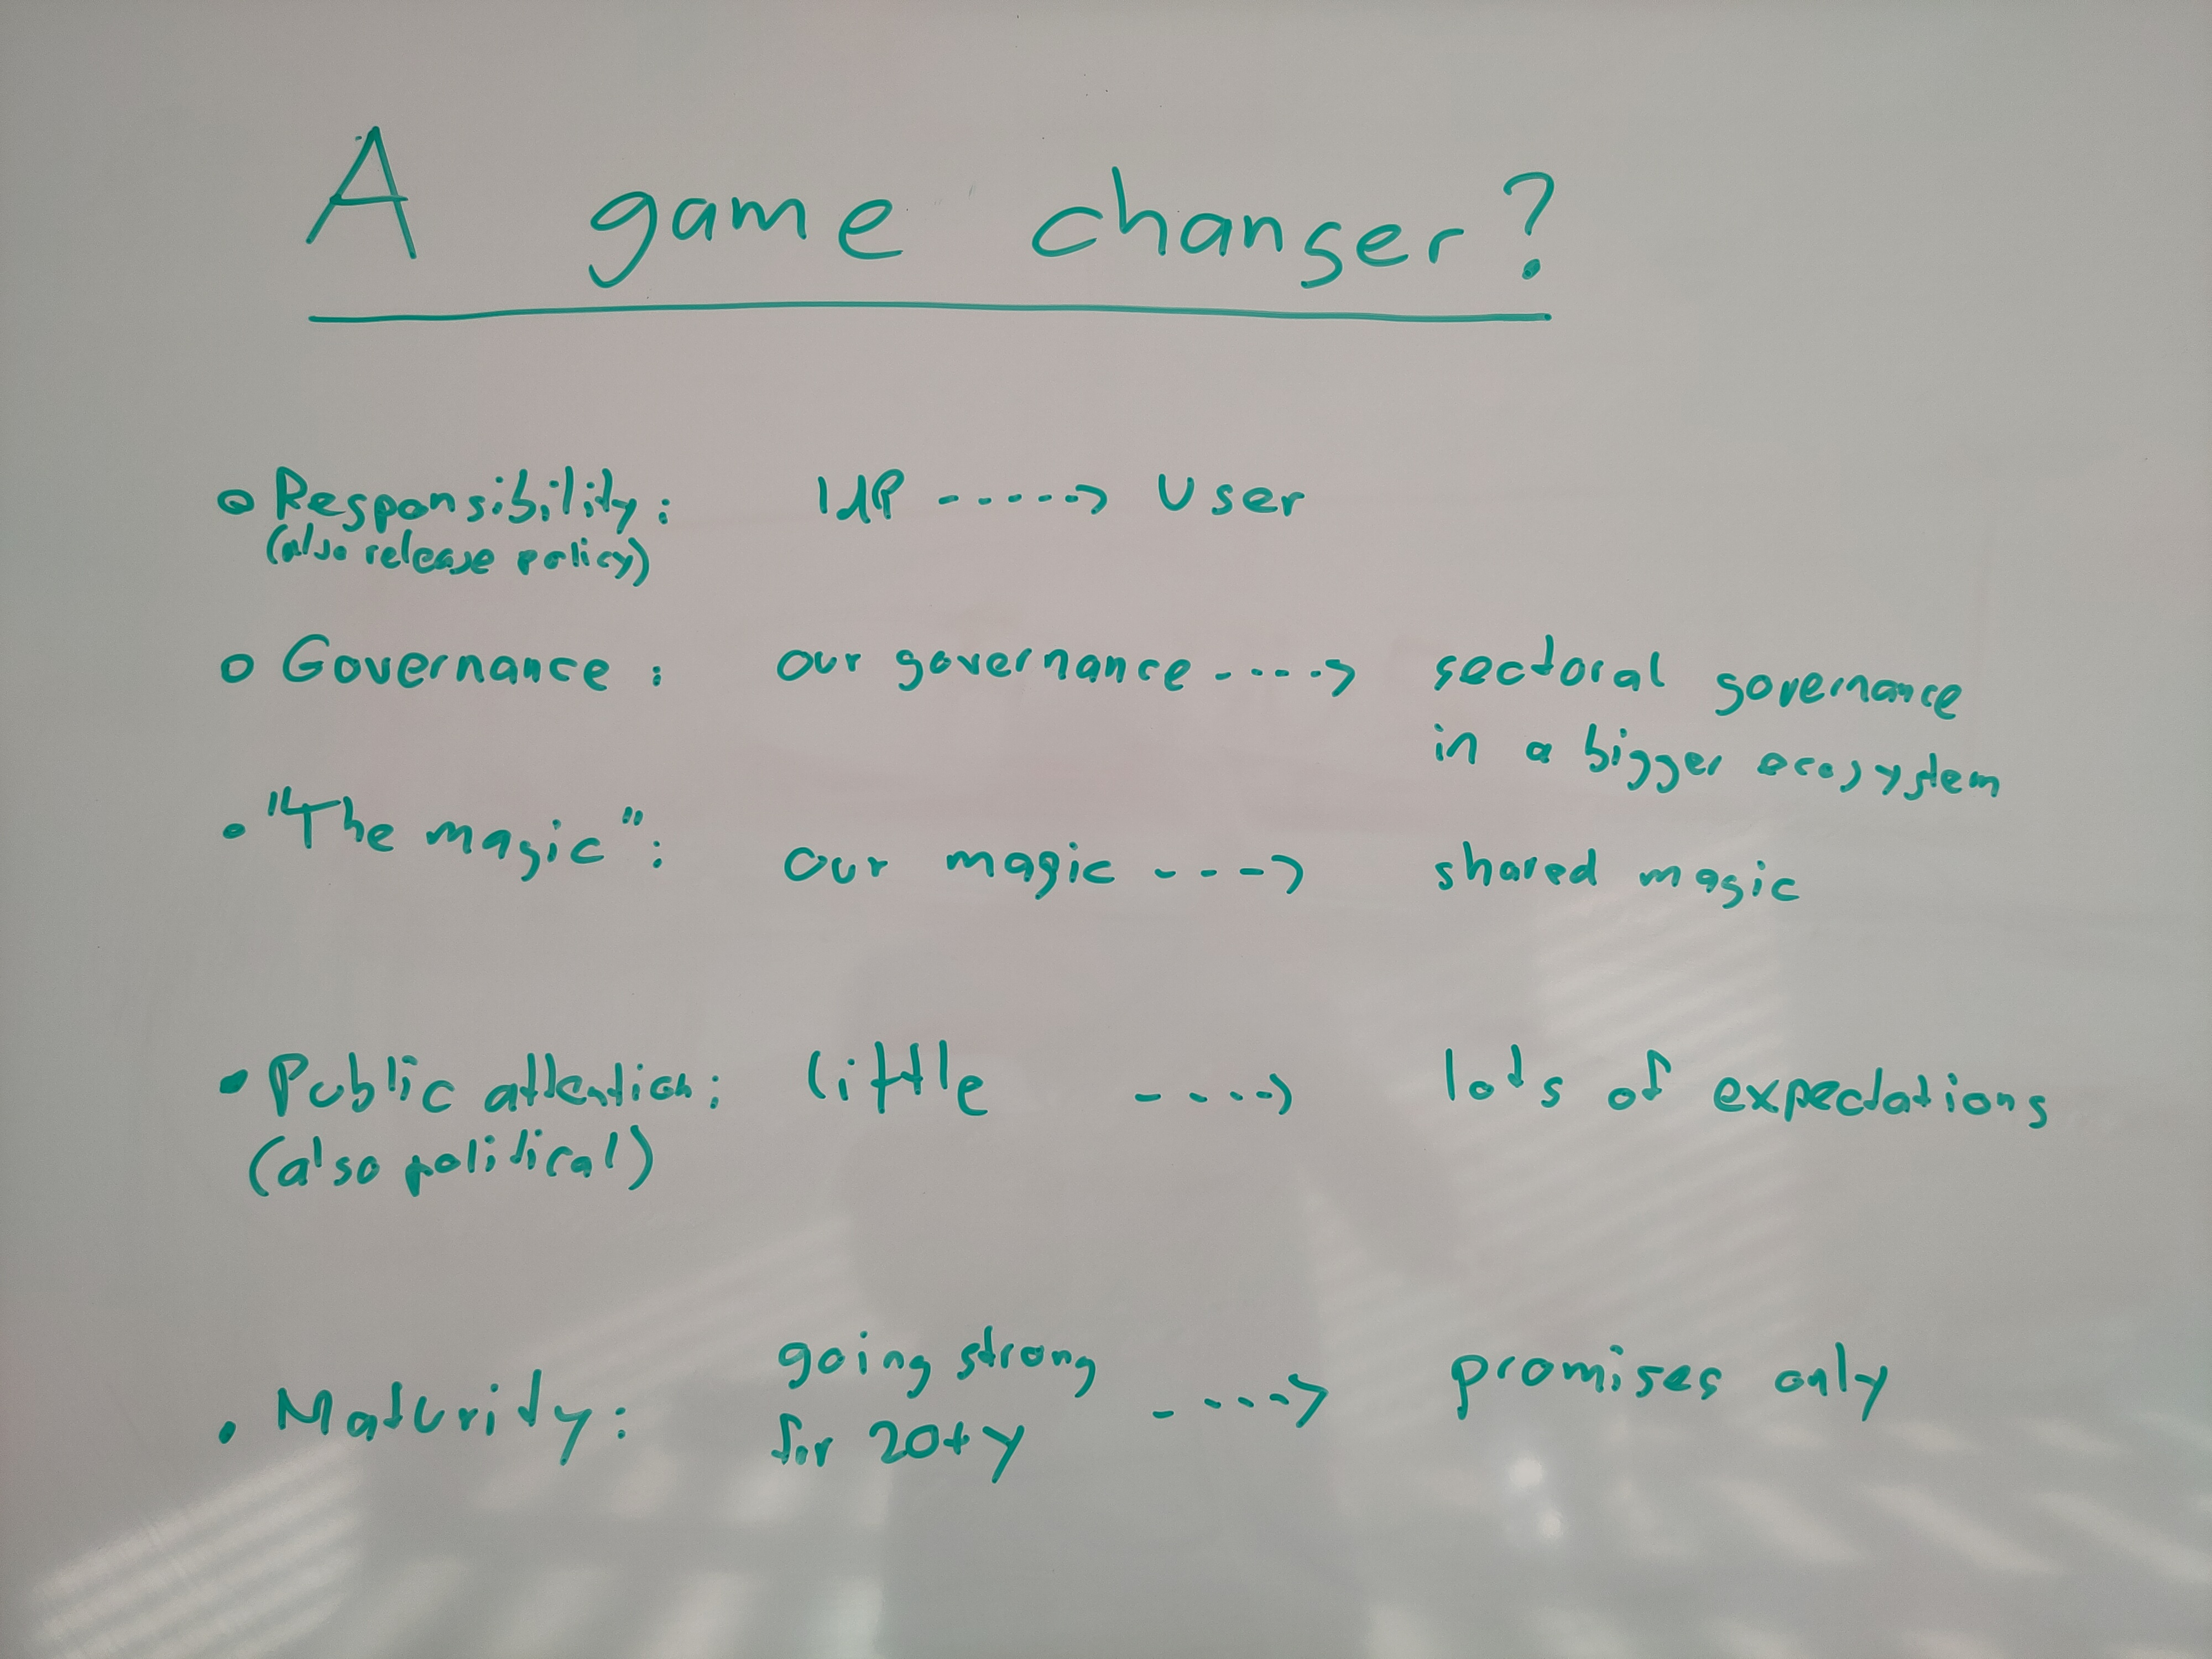 A game changer?
• Responsibility: IdP -----> User
(also release policy)
• Governance: our governance ----> sectoral governance
in a bigger ecosystem
• "The magic": our magic ----> shared magic
• Public attention: little ----> lots of expectations
(also political)
going strong
• Maturity: ----> promises only
for 20+y